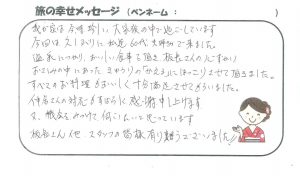 旅の幸せメッセージ（ペンネーム： ）
我が家は今時珍しい大家族の中で過ごしています
今回は久しぶりに 60代夫婦で来ました。
温泉につかり、おいしい食事を頂き 板長さんの
おこしみの中にあった きゅうりの"かえる"にほっこりさせて頂きました。
すべてのお料理もおいしく十分満足させてもらいました。
仲居さんの対応も すばらしく感謝申し上げます
又、機会をみつけて 伺いたいと思っています
板長さん他、スタッフの皆様有り難うございました!!